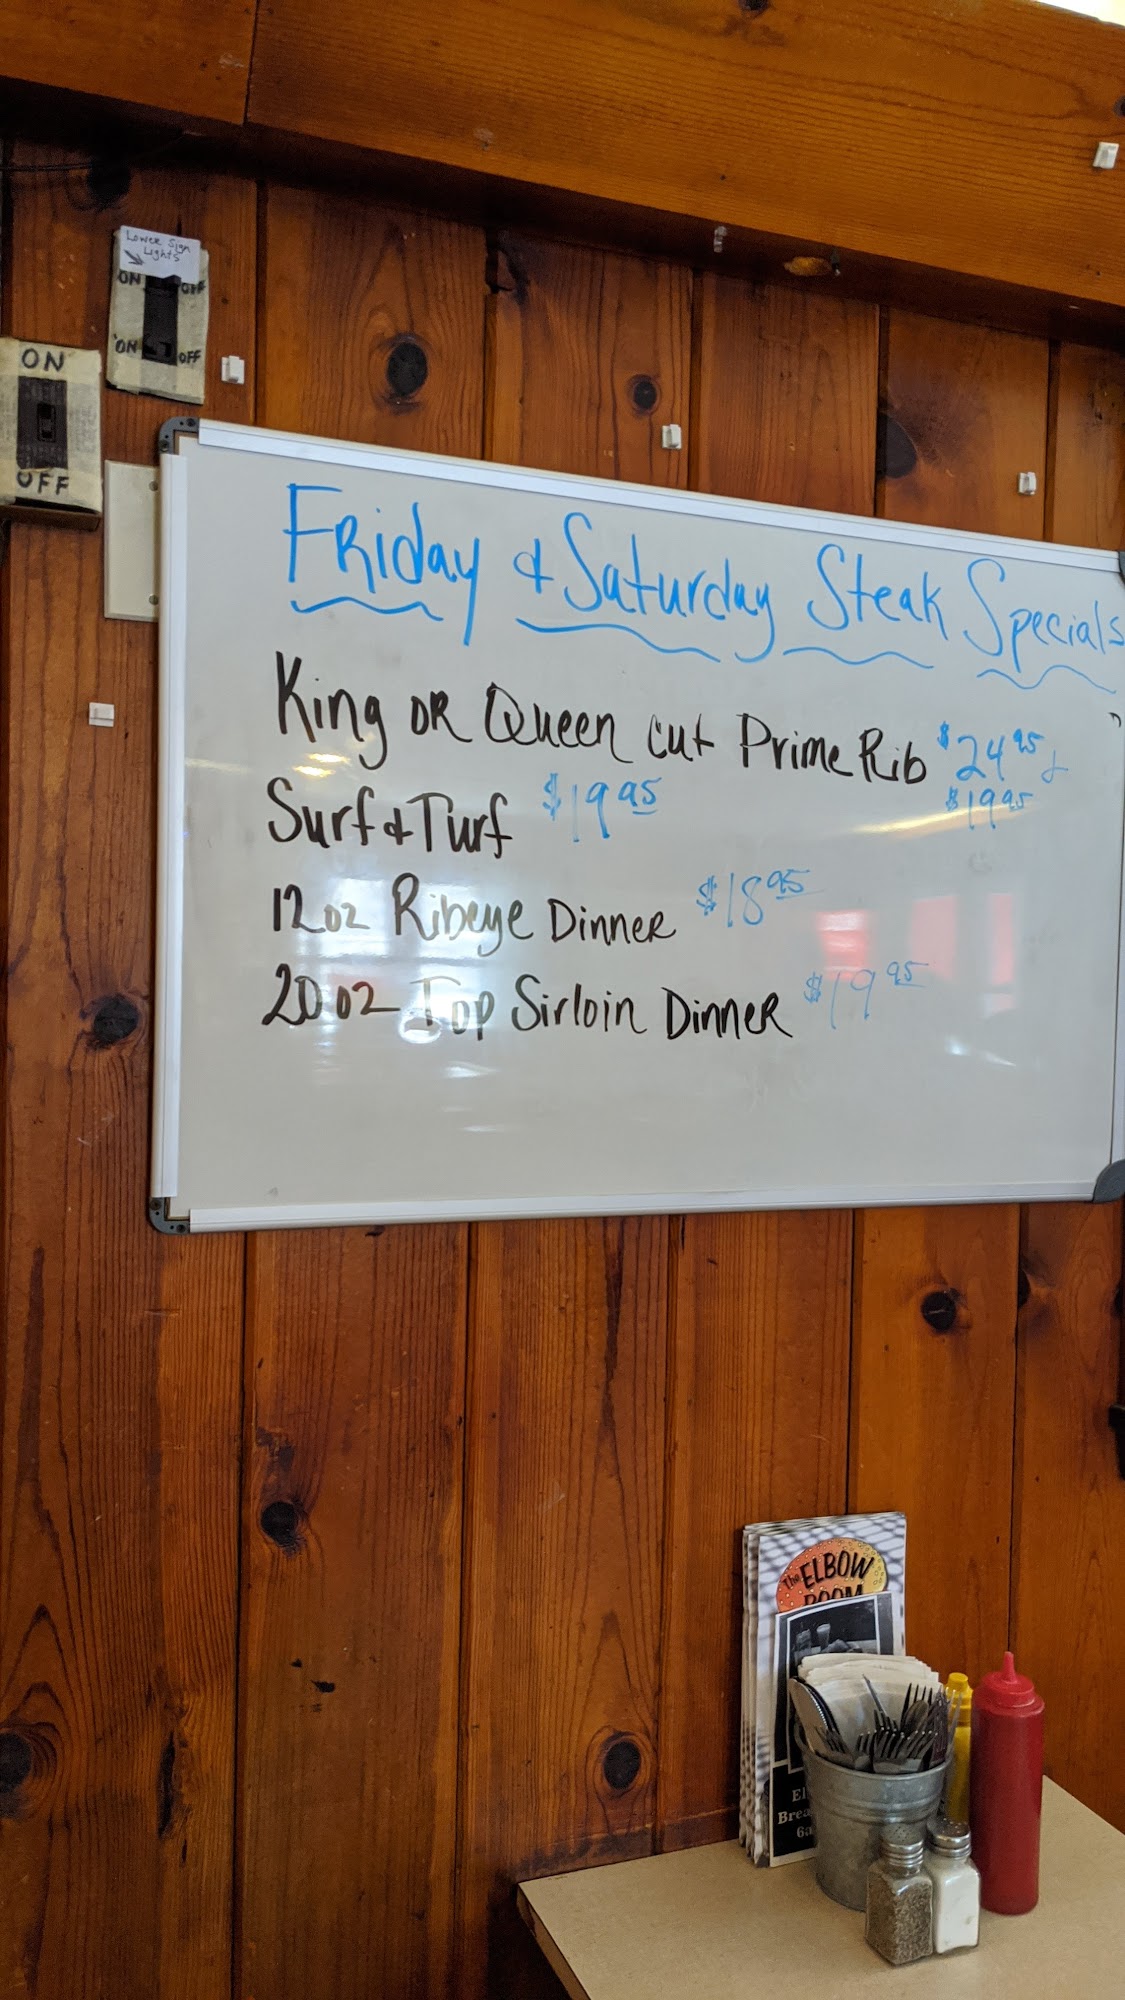 Lower Sign
Lights
ON OFF
ON OFF
ON
OFF
Friday & Saturday Steak Specials
King or Queen cut Prime Rib $24.95 &
$19.95
Surf & Turf $19.95
12oz Ribeye Dinner $18.95
20oz Top Sirloin Dinner $19.95
The ELBOW
ROOM